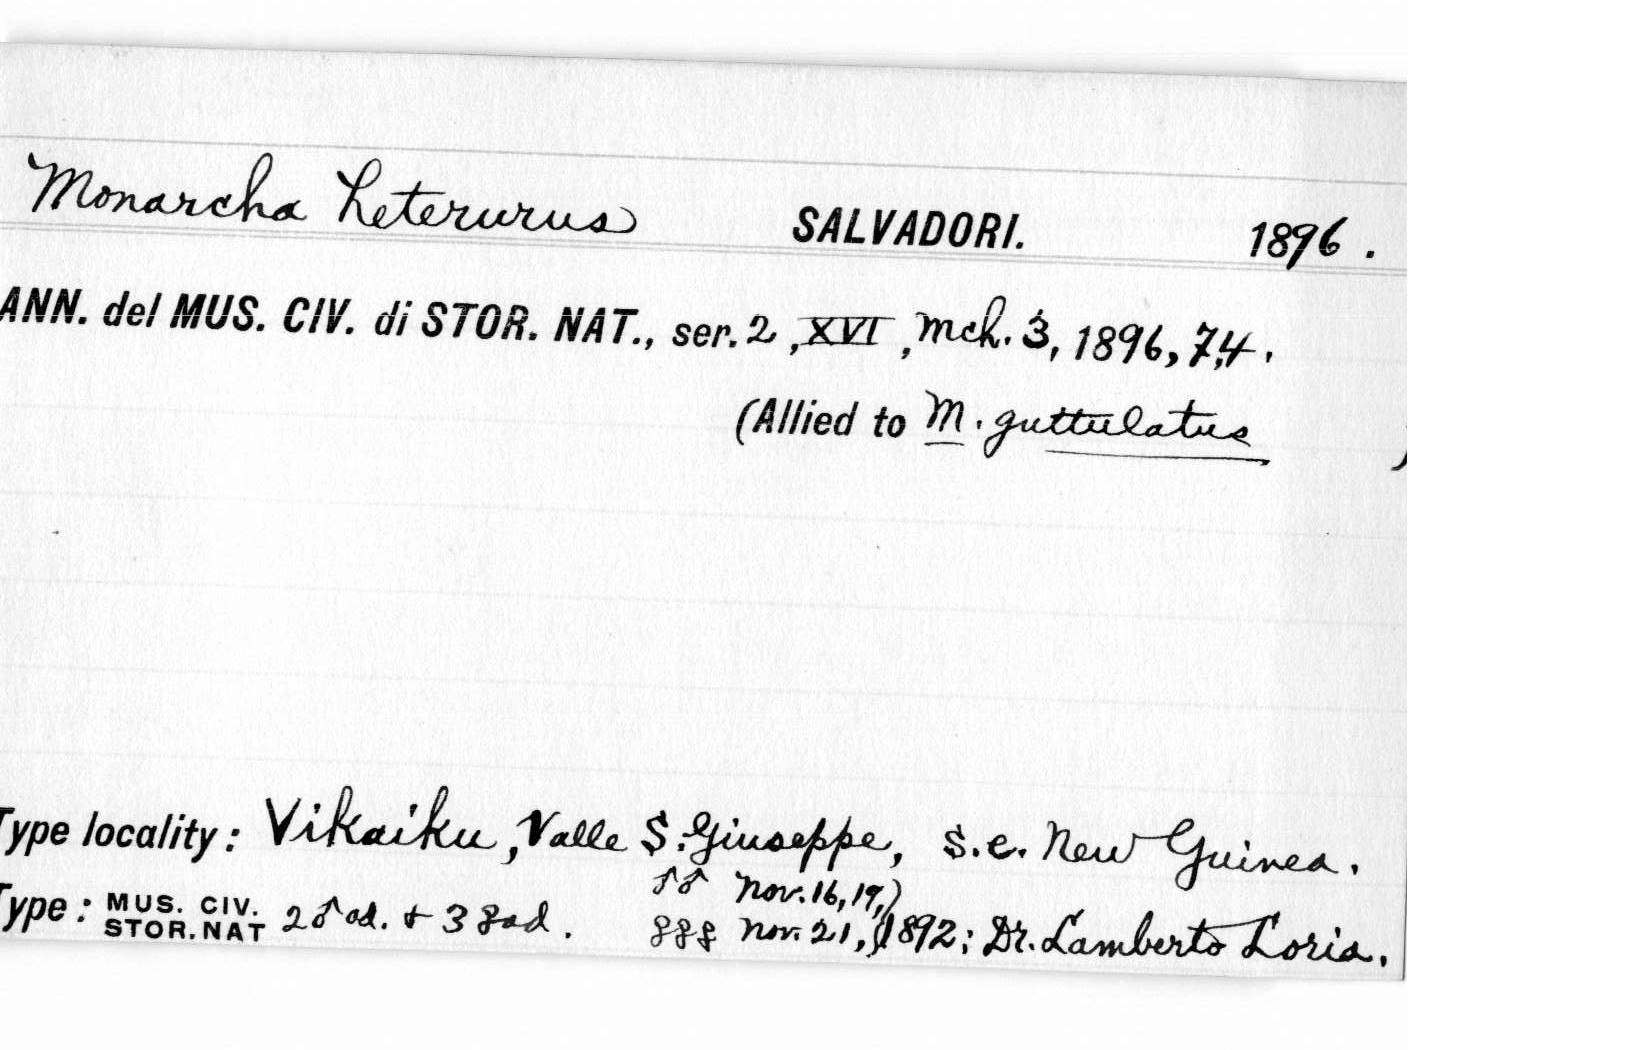 Monarcha heterurus SALVADORI. 1896.
ANN. del MUS. CIV. di STOR. NAT., ser. 2, XVI, Mch. 3, 1896, 74.
(Allied to M. guttulatus )
Type locality: Vikaiku, Valle S. Giuseppe, S.e. New Guinea.
♂♂ Nov. 16, 19,)
Type: MUS. CIV. STOR. NAT 2 ♂ ad. + 3 ♀ ad. ♀♀♀ Nov. 21, (1892; Dr. Lamberto Loria.